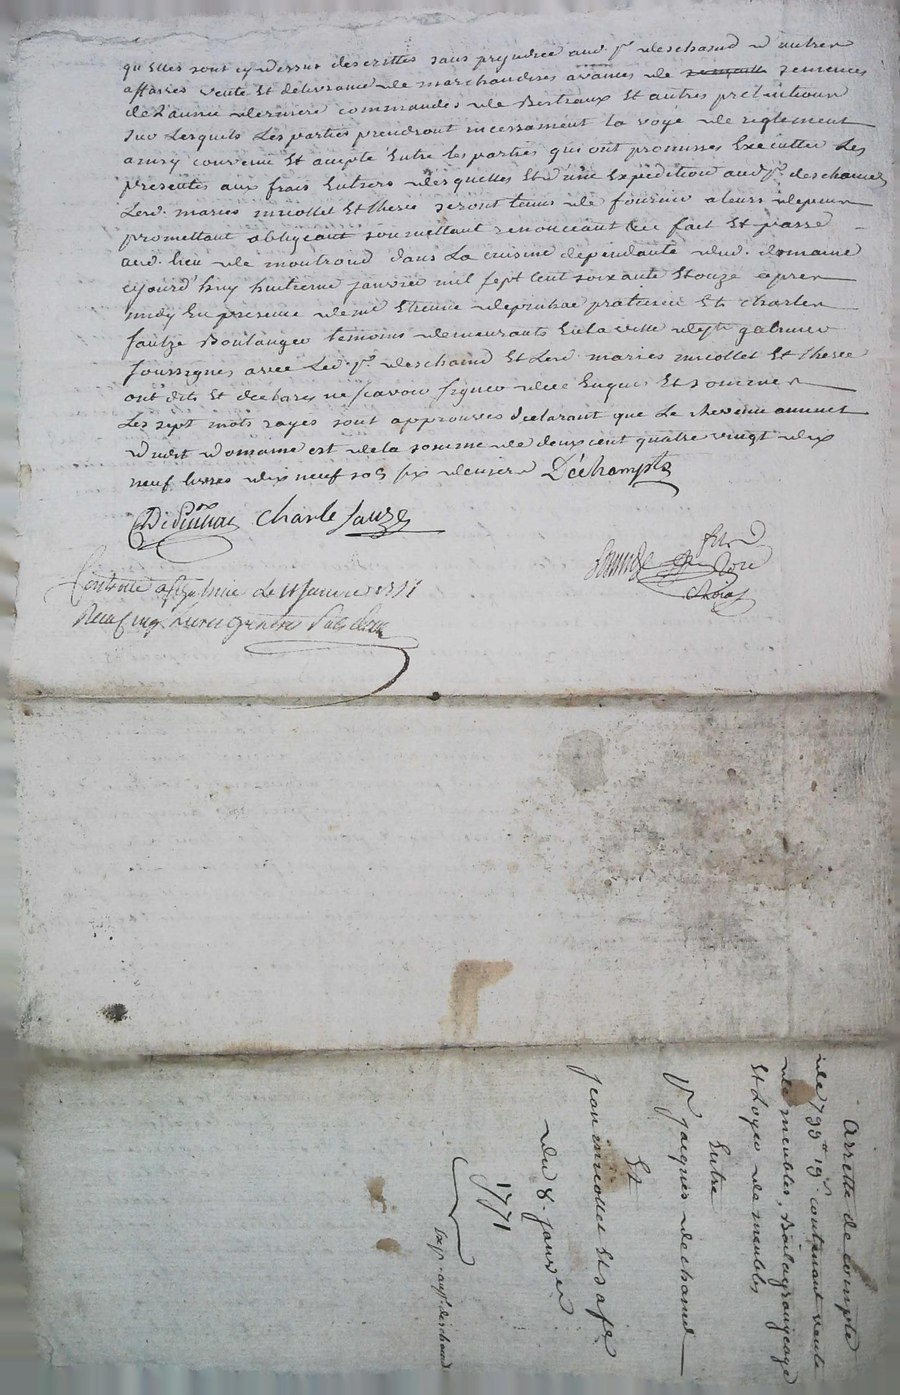 qu'elles sont cy dessus descrittes sans prejudice aud. sr. deschamp d'autres
affaires vente et delivrance de marchandises avances de semences
de l'année derniere commandes de Bestiaux et autres pretentions
sur lesquels les parties prendront incessament la voye de reglement
ainsy convenu et accepté entre les parties qui ont promisses executter les
presentes aux frais entiers desquelles et d'une expedition aud. sr. deschamp
lesd. mariés micollet et there seront tenus de fournir a leurs depens
promettant obligeant soumettant renonceant &ce fait et passé
aud. lieu de montrond dans la cuisine dependante dud. domaine
cejourd'huy huitieme janvier mil sept cent soixante et onze apres
midy en presence de me Etienne praticien et charles
sauze Boulanger temoins demeurants en la ville de st. galmier
soussignes avec led. sr. deschamp et lesd. mariés micollet et there
ont dits et declarés ne scavoir signer de ce enquis et sommes
les sept mots rayes sont approuvés declarant que le revenu annuel
dudit domaine est de la somme de deux cent quatre vingt dix
neuf livres dix neuf sols six deniers Déchamps
Charle Sauze
Controllé a St Galmier le 11 janvier 1771
Recu cinq livres
arretté de compte
de 799lt 19s. contenant vente
de meubles, Bail a grangeage
et loyer de meubles
Entre
sr jacques dechamp
Et
jean micollet et sa fe
du 8. janvier
1771
exp. au sr. deschamp